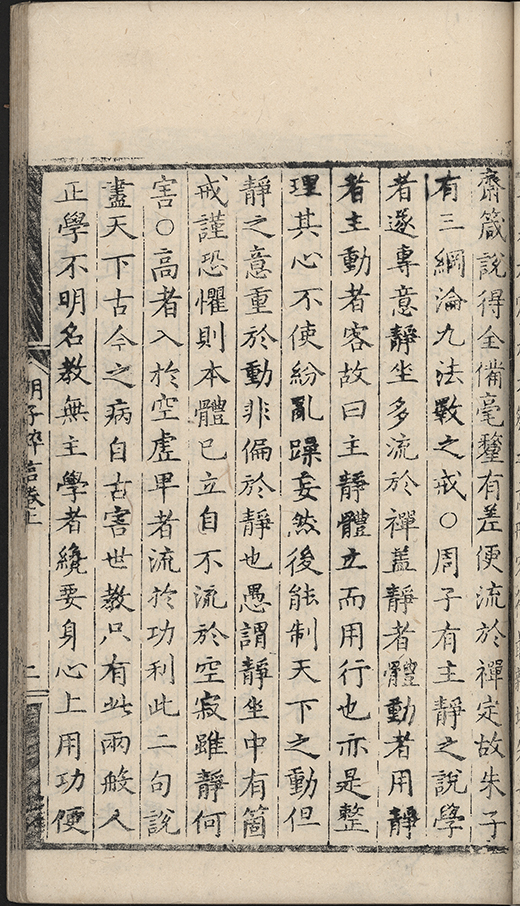 齋箴說得全備毫釐有差便流於禪定故朱子
有三綱淪九法斁之戒○周子有主靜之說學
者遂專意靜坐多流於禪蓋靜者體動者用靜
者主動者客故曰主靜體立而用行也亦是整
理其心不使紛亂躁妄然後能制天下之動但
靜之意重於動非偏於靜也愚謂靜坐中有箇
戒謹恐懼則本體已立自不流於空寂雖靜何
害○高者入於空虛卑者流於功利此二句說
盡天下古今之病自古害世教只有此兩般人
正學不明名教無主學者纔要身心上用功便
胡子粹言卷上